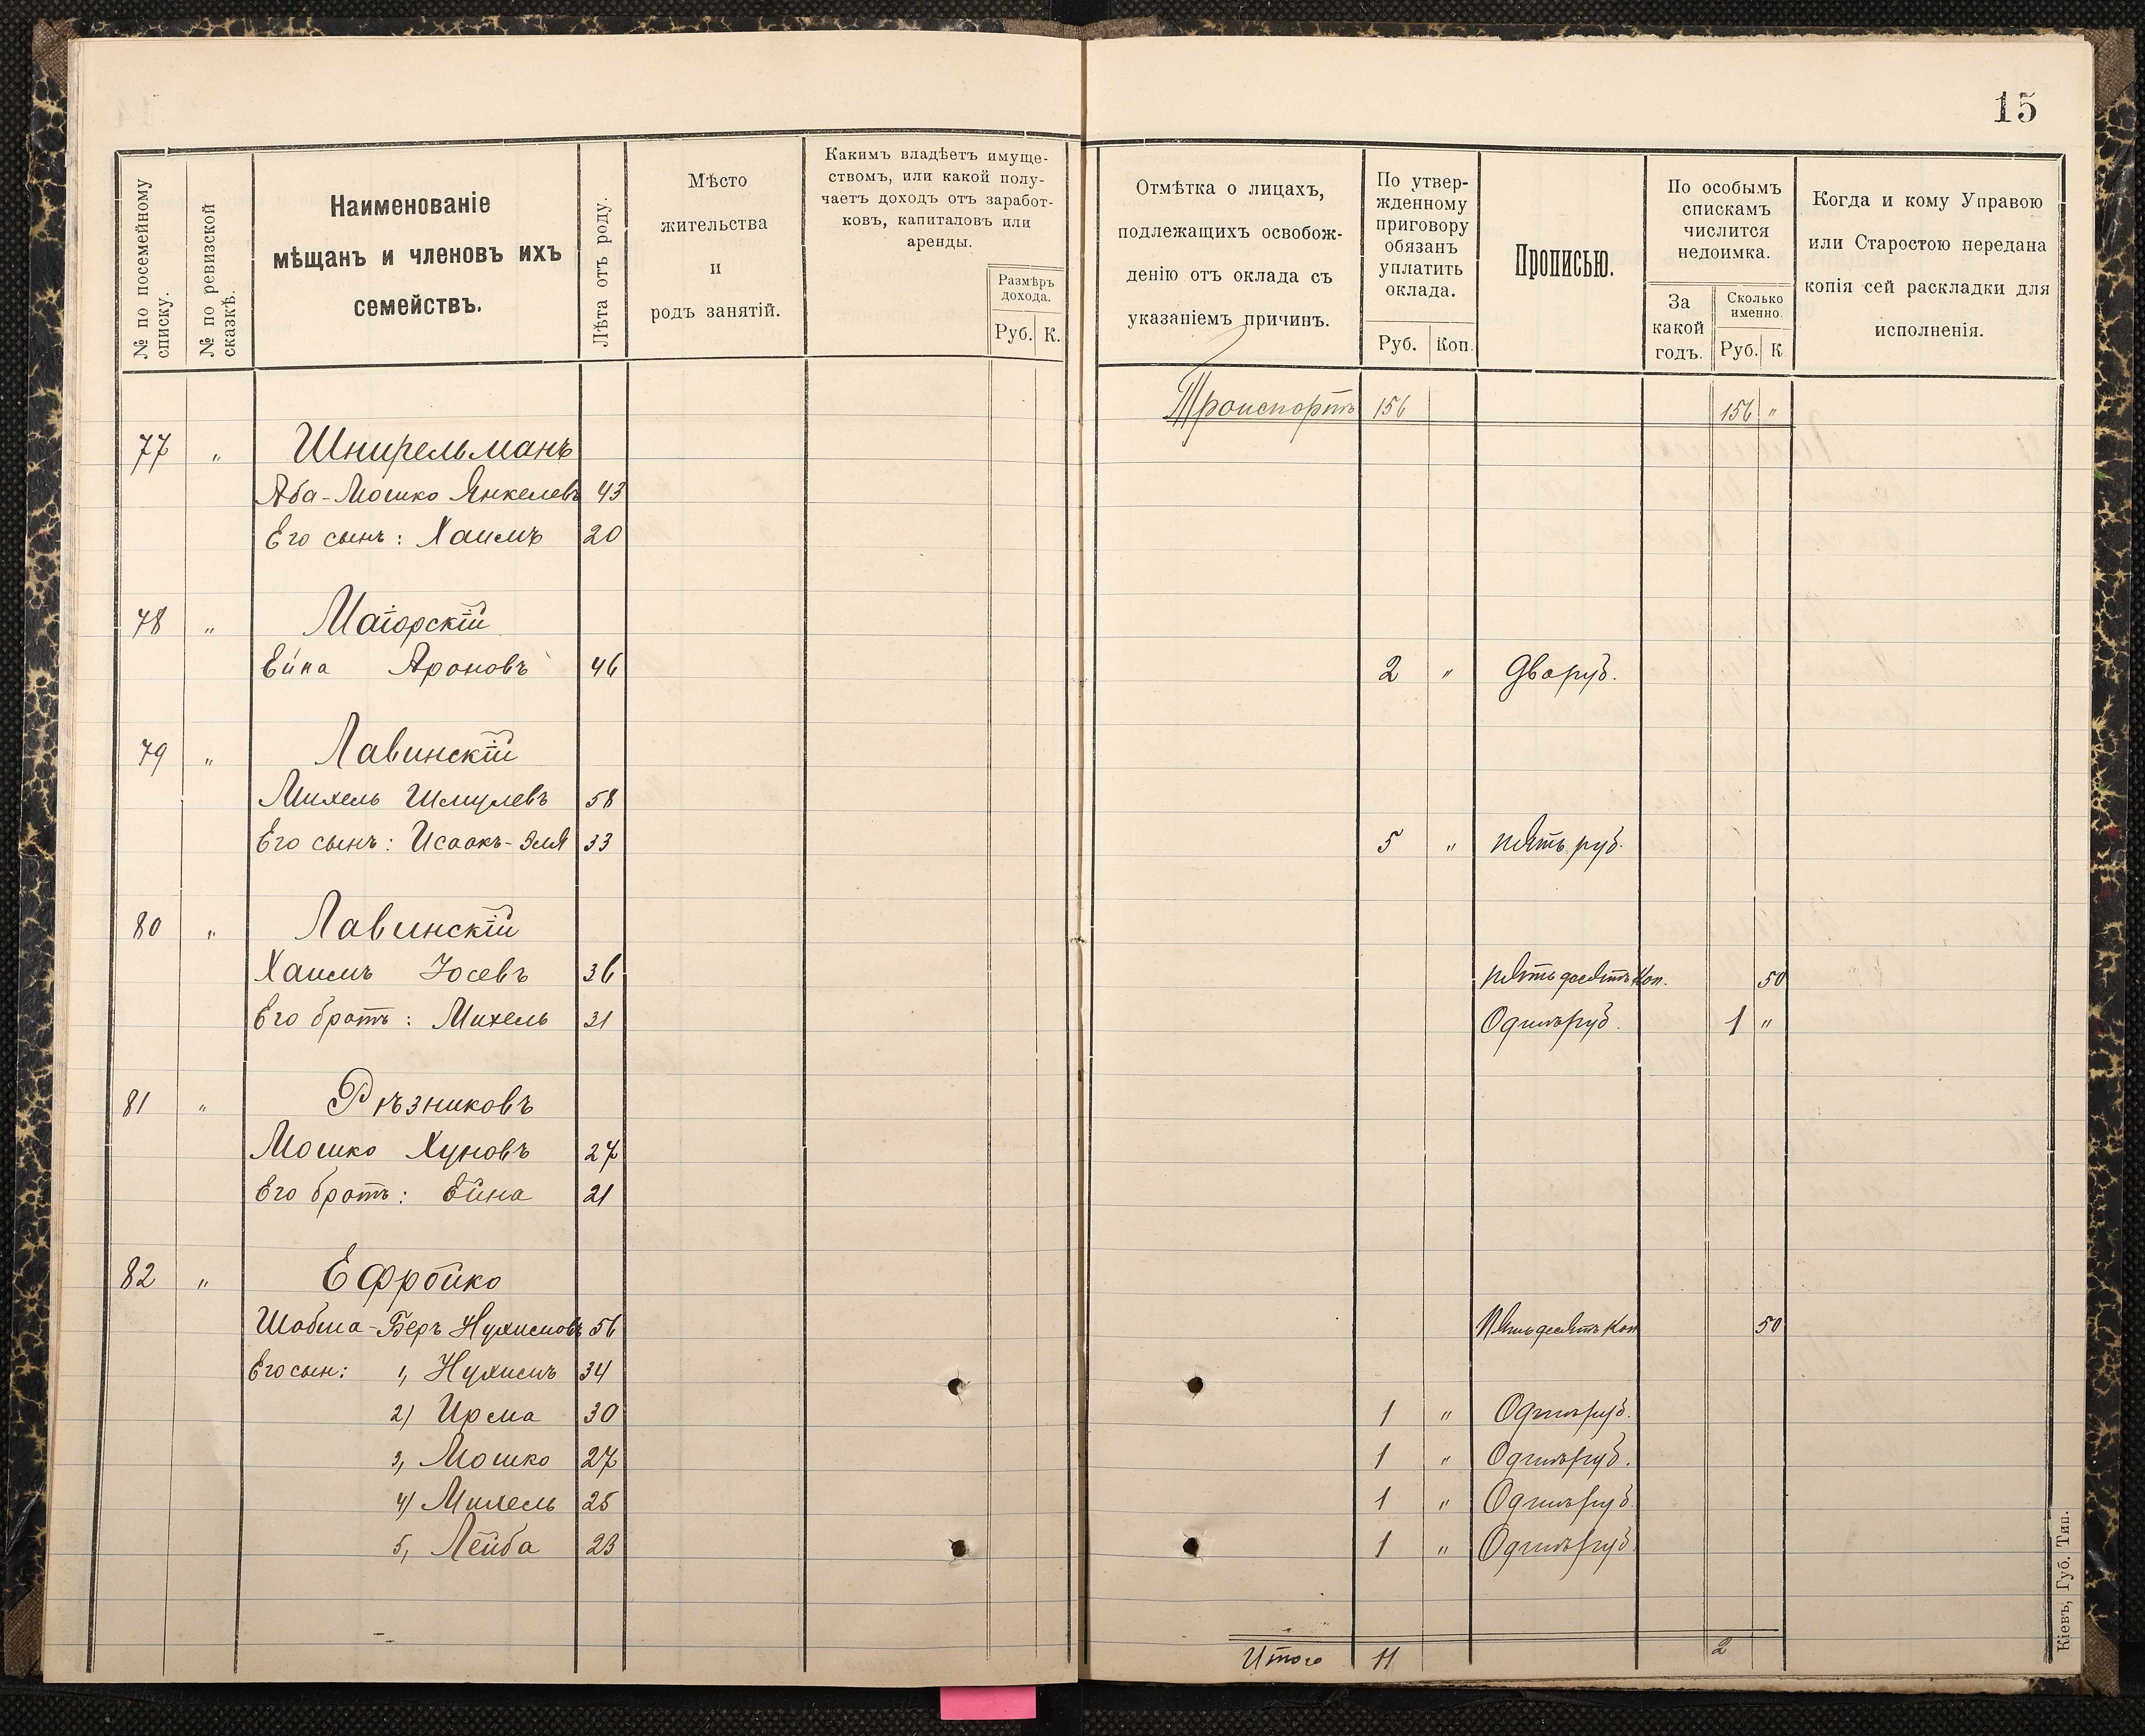 15
№ по посемейному списку.
№ по ревизской сказкѣ.
Наименованіе
мѣщанъ и членовъ ихъ
семействъ.
Лѣта отъ роду.
Мѣсто
жительства
и
родъ занятій.
Какимъ владѣетъ имуще-
ствомъ, или какой полу-
чаетъ доходъ отъ заработ-
ковъ, капиталовъ или
аренды.
Размѣръ
дохода.
Руб. К.
Отмѣтка о лицахъ,
подлежащихъ освобож-
денію отъ оклада съ
указаніемъ причинъ.
По утвер-
жденному
приговору
обязанъ
уплатить
оклада.
Руб. Коп.
Прописью.
По особымъ
спискамъ
числится
недоимка.
За
какой
годъ.
Сколько
именно.
Руб. К
Когда и кому Управою
или Старостою передана
копія сей раскладки для
исполненія.
Транспортъ 156 156 "
77 " Шнирельманъ
Аба-Мошко Янкелевъ 43
Его сынъ: Хаимъ 20
78 " Маіорскій
Ейна Ароновъ 46 2 " Два руб.
79 " Лавинскій
Михель Шмулевъ 58
Его сынъ: Исаакъ-Эля 33 5 " пять руб.
80 " Лавинскій
Хаимъ Іосевъ 36 пятьдесятъ коп. 50
Его братъ: Михель 31 Одинъ руб. 1 "
81 " Рѣзниковъ
Мошко Хуновъ 27
Его братъ: Ейна 21
82 " Ефройко
Шабса-Беръ Нухимовъ 56 Пятьдесятъ коп 50
Его сын: 1, Нухимъ 34
2) Ирма 30 1 " Одинъ руб.
3, Мошко 27 1 " Одинъ руб.
4) Михель 25 1 " Одинъ руб.
5, Лейба 23 1 " Одинъ руб.
Итого 11 2
Кіевъ, Губ. Тип.